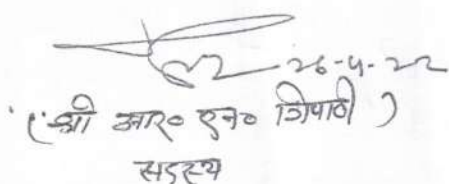 26-4-22
(श्री आर० एन० त्रिपाठी)
सदस्य